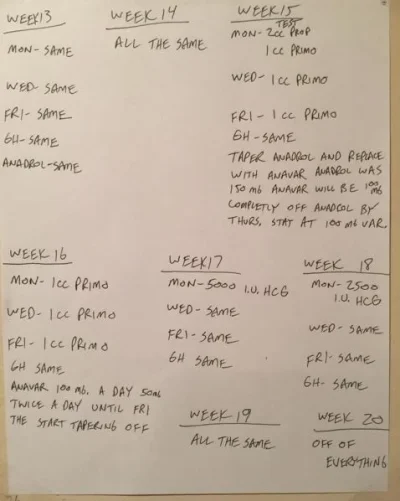 WEEK 13
MON- SAME
WED- SAME
FRI- SAME
GH- SAME
ANADROL-SAME
WEEK 14
ALL THE SAME
WEEK 15
TEST
MON- 2cc PROP
1cc PRIMO
WED- 1cc PRIMO
FRI- 1cc PRIMO
GH- SAME
TAPER ANADROL AND REPLACE
WITH ANAVAR ANADROL WAS
150 MG ANAVAR WILL BE 100 MG
COMPLETLY OFF ANADROL BY
THURS. STAY AT 100 MG VAR.
WEEK 16
MON- 1cc PRIMO
WED- 1cc PRIMO
FRI- 1cc PRIMO
GH SAME
ANAVAR 100 MG. A DAY 50MG
TWICE A DAY UNTIL FRI
THE START TAPERING OFF
WEEK 17
MON- 5000 I.U. HCG
WED- SAME
FRI- SAME
GH SAME
WEEK 18
MON- 2500
I.U. HCG
WED- SAME
FRI- SAME
GH- SAME
WEEK 19
ALL THE SAME
WEEK 20
OFF OF
EVERYTHING